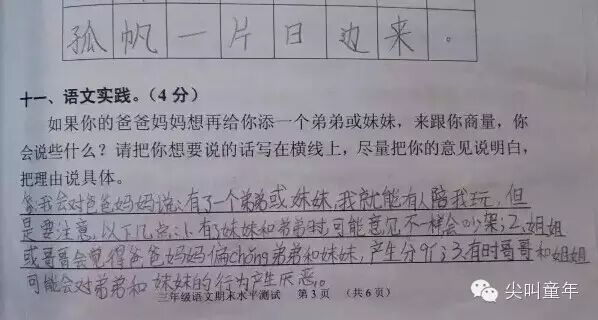 孤帆一片日边来。
十一、语文实践。（4分）
如果你的爸爸妈妈想再给你添一个弟弟或妹妹，来跟你商量，你
会说些什么？请把你想要说的话写在横线上，尽量把你的意见说明白，
把理由说具体。
我会对爸爸妈妈说：有了一个弟弟或妹妹，我就能有人陪我玩，但
是要注意以下几点：1、有了妹妹和弟弟时可能意见不一样会吵架；2、姐姐
或哥哥会觉得爸爸妈妈偏chǒng弟弟和妹妹，产生分qí；3、有时哥哥和姐姐
可能会对弟弟和妹妹的行为产生厌恶。
三年级语文期末水平测试 第3页 （共6页）
尖叫童年